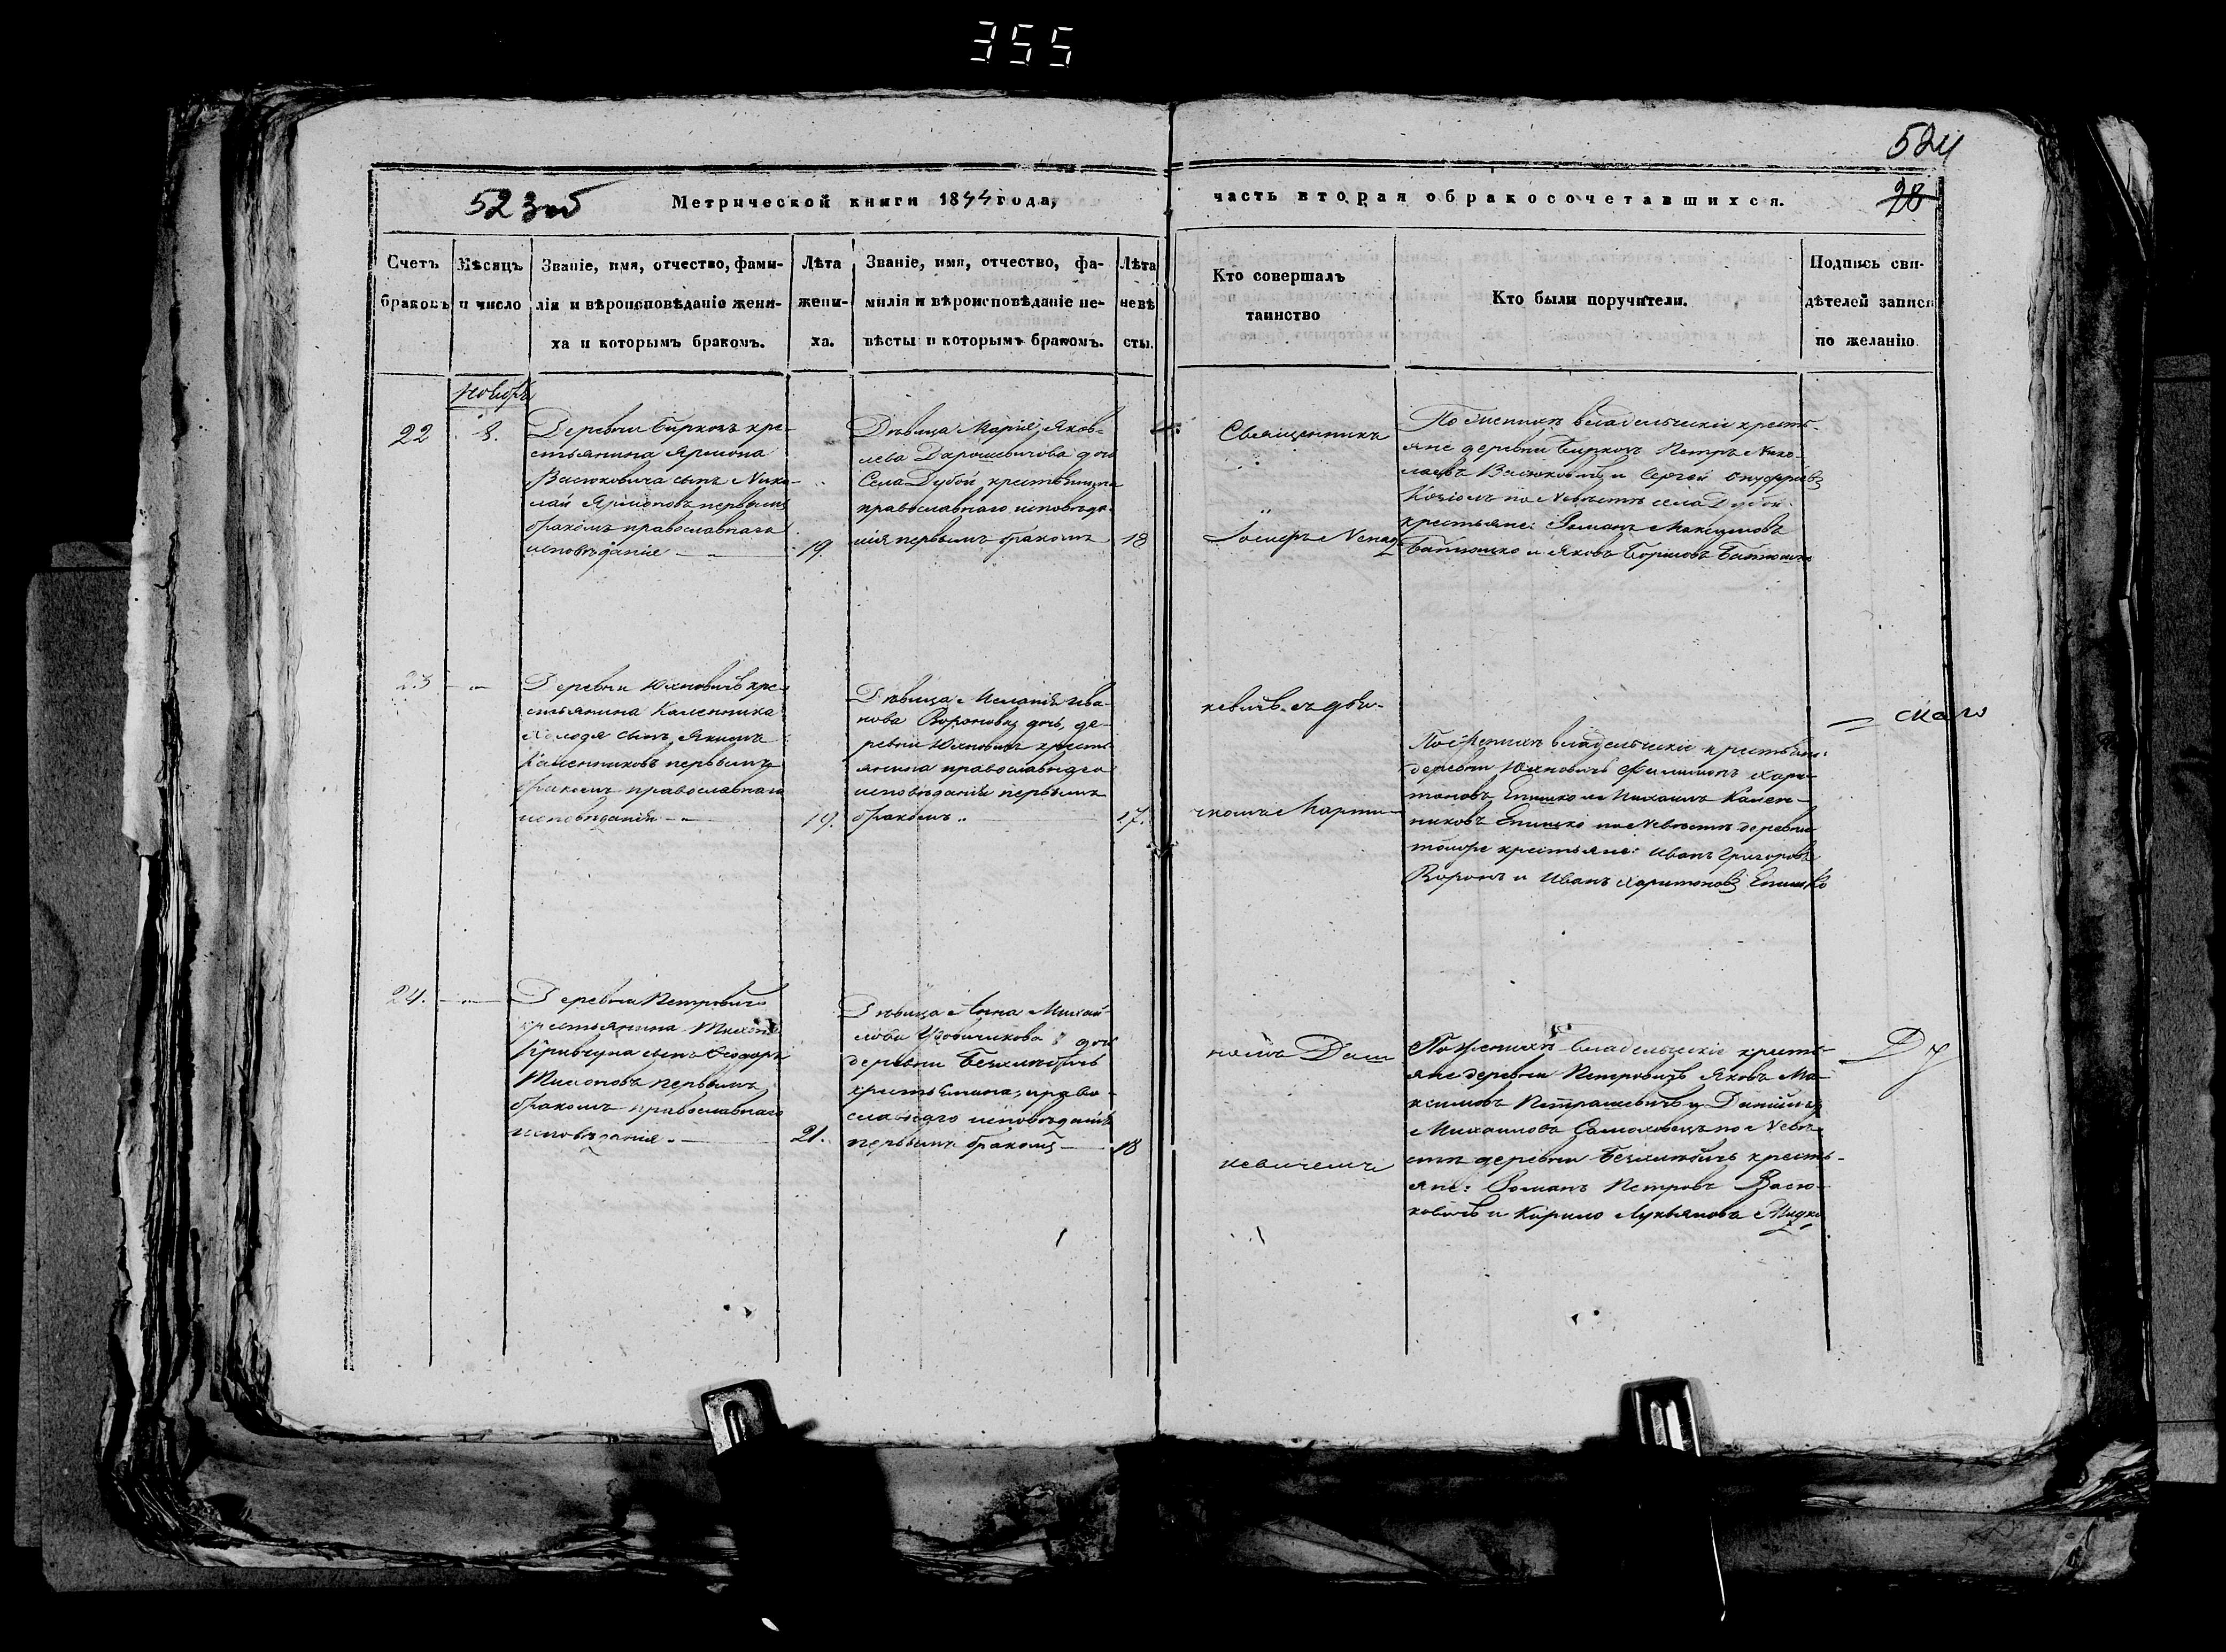 355
524
523об
Метрической книги 1844 года,
часть вторая о бракосочетавшихся.
28
Счетъ
браковъ
Мѣсяцъ
и число
Званіе, имя, отчество, фами-
лія и вѣроисповѣданіе жени-
ха и которымъ бракомъ.
Лѣта
жени-
ха.
Званіе, имя, отчество, фа-
милія и вѣроисповѣданіе не-
вѣсты и которымъ бракомъ.
Лѣта
невѣ
сты.
Кто совершалъ
таинство
Кто были поручители.
Подпись сви-
дѣтелей записи
по желанію.
Ноябрь
22
8.
Деревни Бирковъ кре-
стьянина Ярмона
Васюковича сынъ Нико-
лай Ярмоновъ первымъ
бракомъ православнаго
исповѣданія
19.
Дѣвица Марія Яков-
лева Дарошевичова дочь
Села Дубой крестьянина
православнаго исповѣда-
нія первымъ бракомъ
18
Священникъ
Іосифъ
По женихѣ владельческіе кресть-
яне деревни Бирковъ Петръ Нико-
лаевъ Васюковичъ и Сергей Онуфріевъ
Козіолъ по Невѣстѣ села Дубой
крестьяне: Романъ Максимовъ
и Яковъ Борисовъ
23
Деревни Юхновичъ кре-
стьянина Каленника
сынъ Якимъ
Каленниковъ первымъ
бракомъ православнаго
исповѣданія
19.
Дѣвица Меланія Ива-
нова дочь, де-
ревни Юхновичъ кресть-
янина православнаго
исповѣданія первымъ
бракомъ
17.
кевичъ съ дья-
чкомъ Марти-
По женихѣ владельческіе крестьяне:
деревни Юхновичъ Филимонъ Хари-
тоновъ Епишко и Михаилъ Кален-
никовъ Епишко по Невѣстѣ деревни
тойже крестьяне: Иванъ Григоровъ
Воронъ и Иванъ Харитоновъ Епишко
24.
Деревни Петровичъ
крестьянина Тихона
Кривчуна сынъ Ѳеодоръ
Тихоновъ первымъ
бракомъ православнаго
исповѣданія
21.
Дѣвица Анна Михай-
лова дочь
деревни
крестьянина, право-
славнаго исповѣданія
первымъ бракомъ
18
номъ Даш
кевичемъ
По женихѣ владельческіе кресть-
яне деревни Петровичъ Яковъ Ма-
ксимовъ Петрашевичъ и Даніилъ
Михаиловъ по Невѣ-
стѣ деревни кресть-
яне: Романъ Петровъ Васю-
ковичъ и Кирило Лукьяновъ